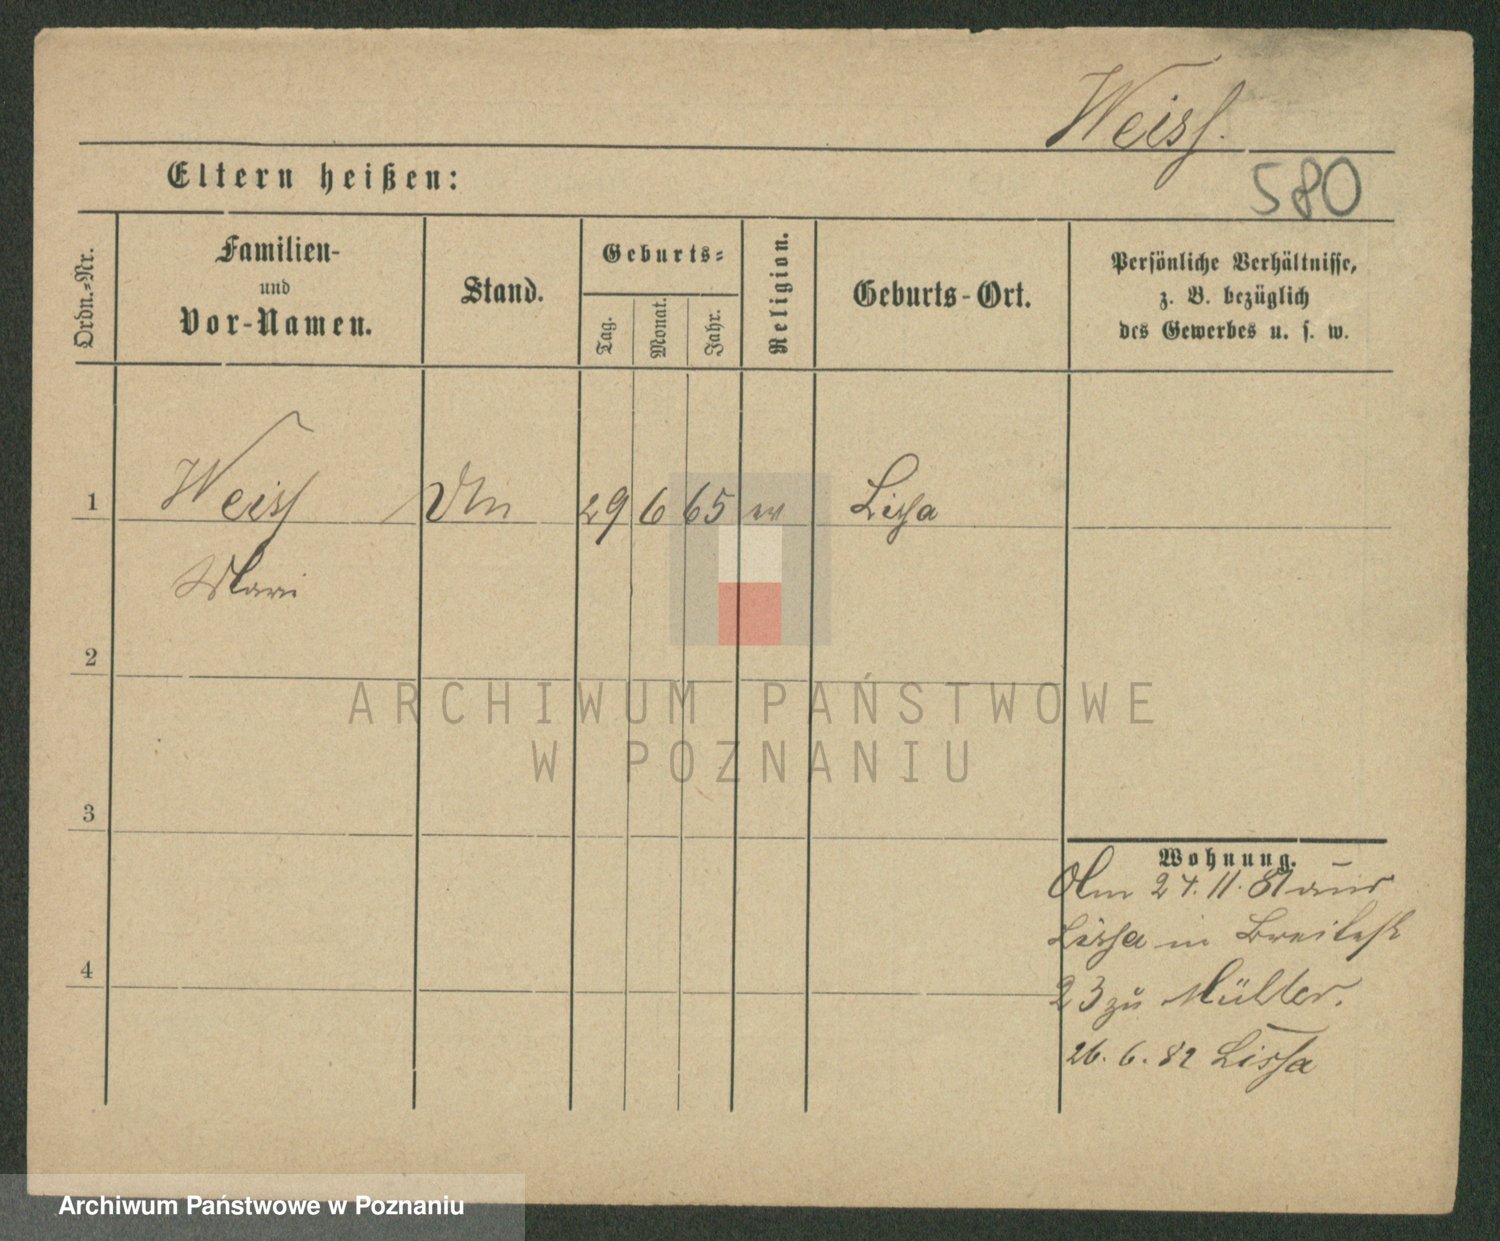 Weiss.
Eltern heißen:
580
Ordn.-Nr.
Familien-
und
Vor-Namen.
Stand.
Geburts-
Tag.
Monat.
Jahr.
Religion.
Geburts-Ort.
Persönliche Verhältnisse,
z. B. bezüglich
des Gewerbes u. s. w.
1 Weiss 29 6 65 ev Lissa
Marie
2
ARCHIWUM PAŃSTWOWE
W POZNANIU
3
Wohnung.
24. 11. 81 aus
Lissa in Breitestr
4
23 zu Müller.
26. 6. 82 Lissa
Archiwum Państwowe w Poznaniu